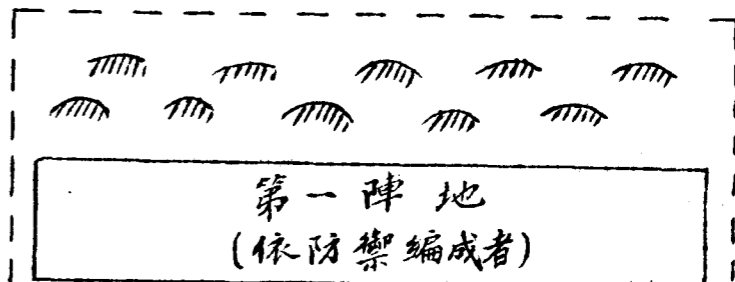 第一陣地
(依防禦編成者)